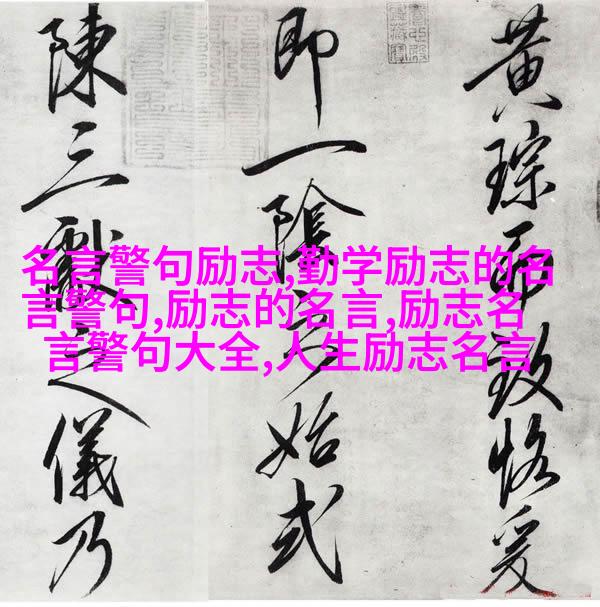 黄琮而致恪爰
即一陰之始式
陳三獻之儀乃
名言警句励志,勤学励志的名
言警句,励志的名言,励志名
言警句大全,人生励志名言